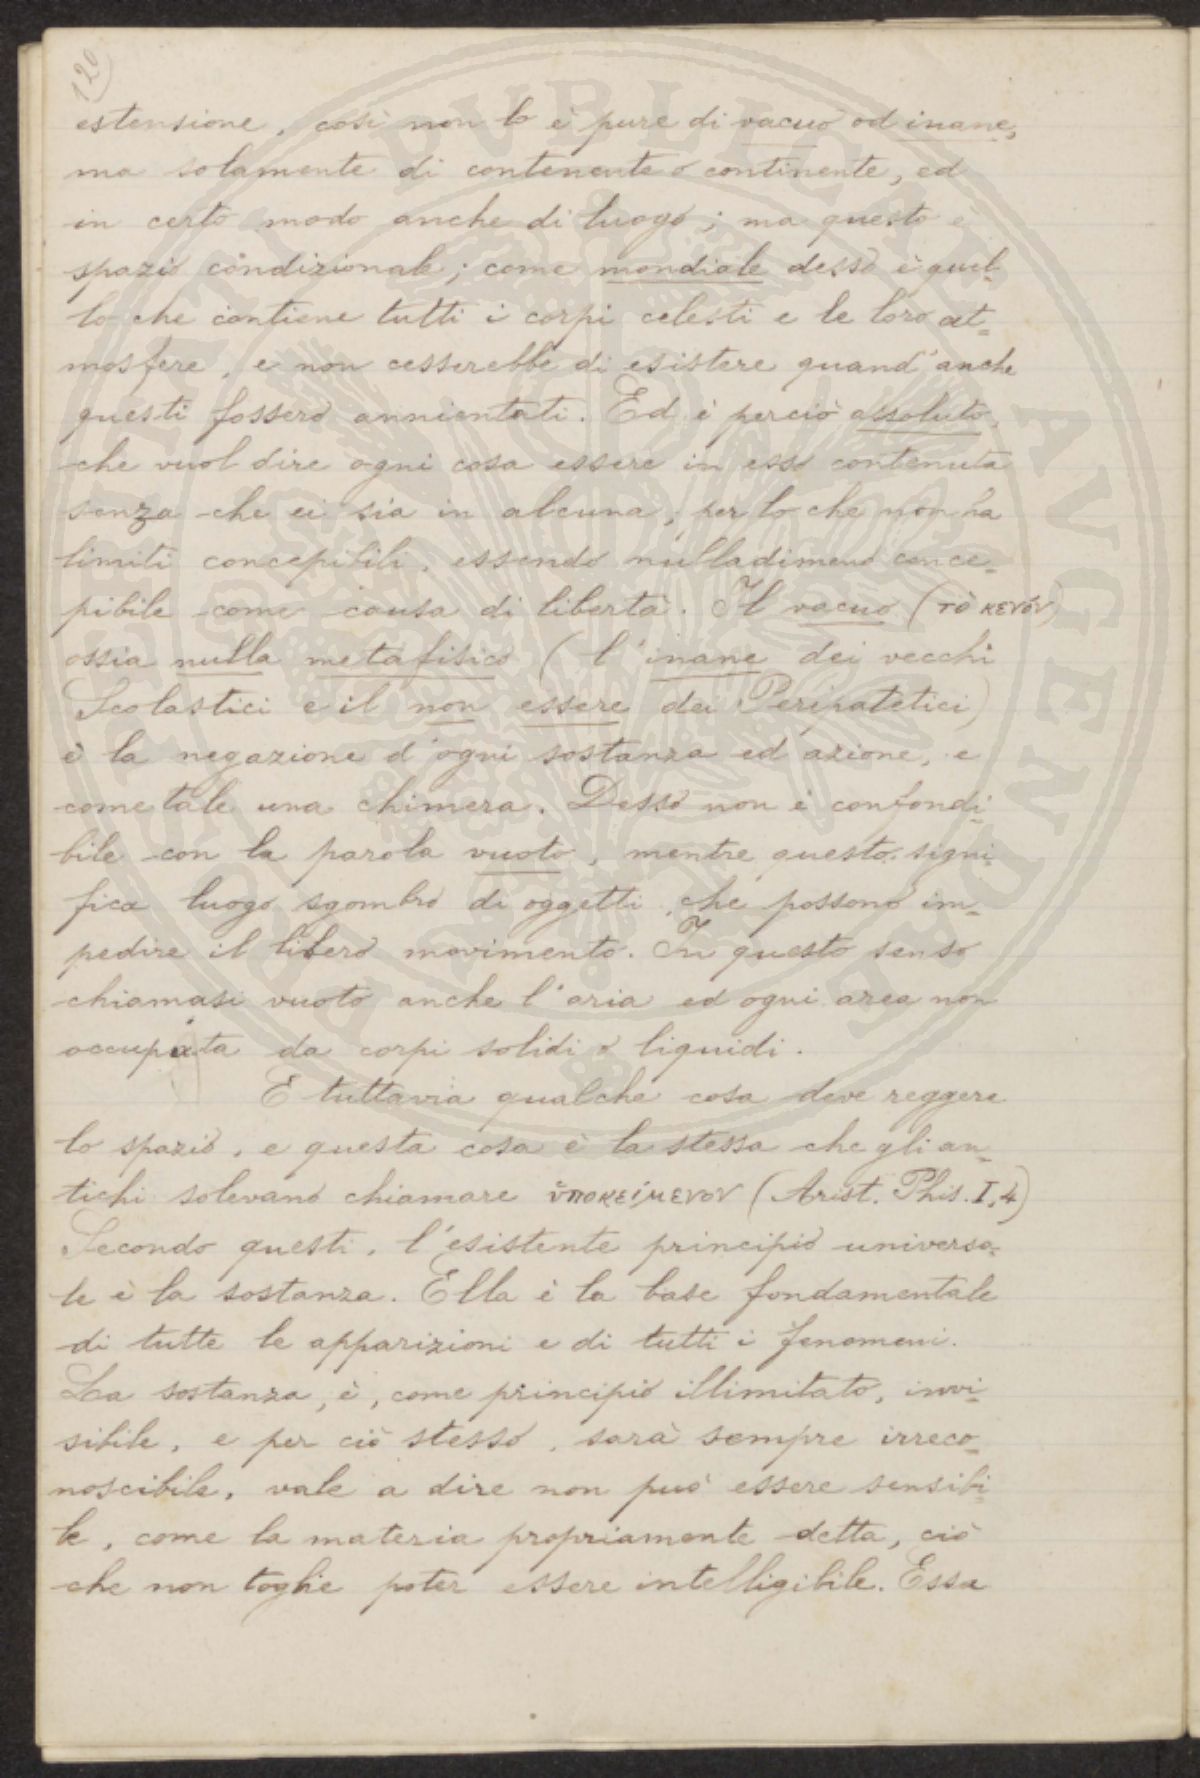 120
estensione, così non lo è pure di vacuo od inane,
ma solamente di contenente o continente, ed
in certo modo anche di luogo; ma questo è
spazio condizionale; come mondiale desso è quel-
lo che contiene tutti i corpi celesti e le loro at-
mosfere, e non cesserebbe di esistere quand'anche
questi fossero annientati. Ed è perciò assoluto,
che vuol dire ogni cosa essere in esso contenuta
senza che ei sia in alcuna; per lo che non ha
limiti concepibili, essendo nulladimeno conce-
pibile come causa di libertà. Il vacuo (τὸ κενόν)
ossia nulla metafisico (l'inane dei vecchi
Scolastici e il non essere dei Peripatetici)
è la negazione d'ogni sostanza ed azione, e
come tale una chimera. Desso non è confondi-
bile con la parola vuoto, mentre questo signi-
fica luogo sgombro di oggetti che possono im-
pedire il libero movimento. In questo senso
chiamasi vuoto anche l'aria ed ogni area non
occupata da corpi solidi o liquidi.
E tuttavia qualche cosa deve reggere
lo spazio, e questa cosa è la stessa che gli an-
tichi solevano chiamare ὑποκείμενον (Arist. Phis. I, 4)
Secondo questi, l'esistente principio universa-
le è la sostanza. Ella è la base fondamentale
di tutte le apparizioni e di tutti i fenomeni.
La sostanza, è, come principio illimitato, invi-
sibile, e per ciò stesso, sarà sempre irreco-
noscibile, vale a dire non può essere sensibi-
le, come la materia propriamente detta, ciò
che non toglie poter essere intelligibile. Essa